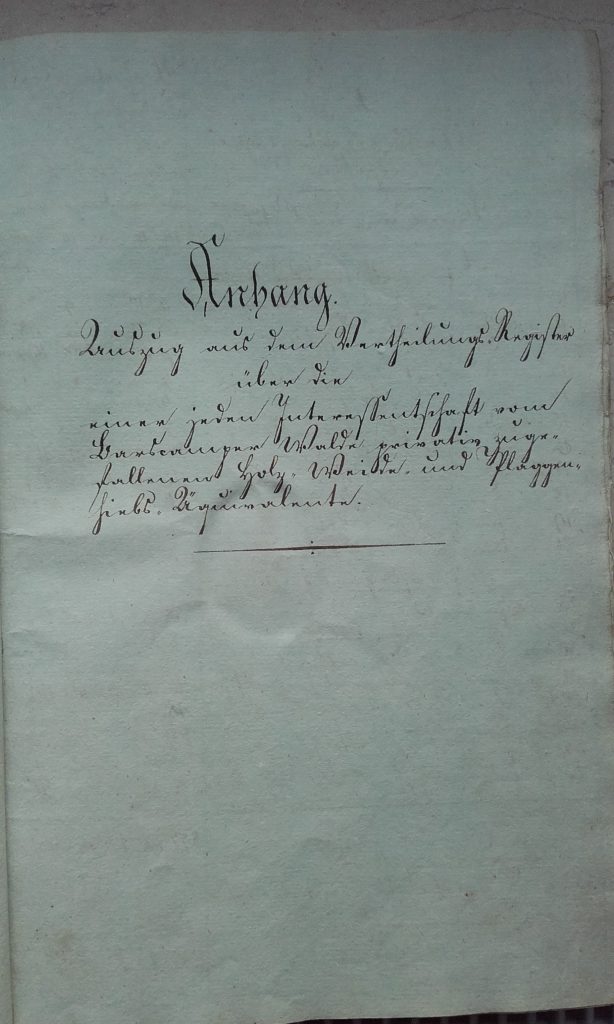 Anhang.
Auszug aus dem Vertheilungs-Register
über die
einer jeden Interessentschaft vom
Barscamper Walde privativ zuge-
fallenen Holz-, Weide- und Plaggen-
hiebs-Äquivalente.